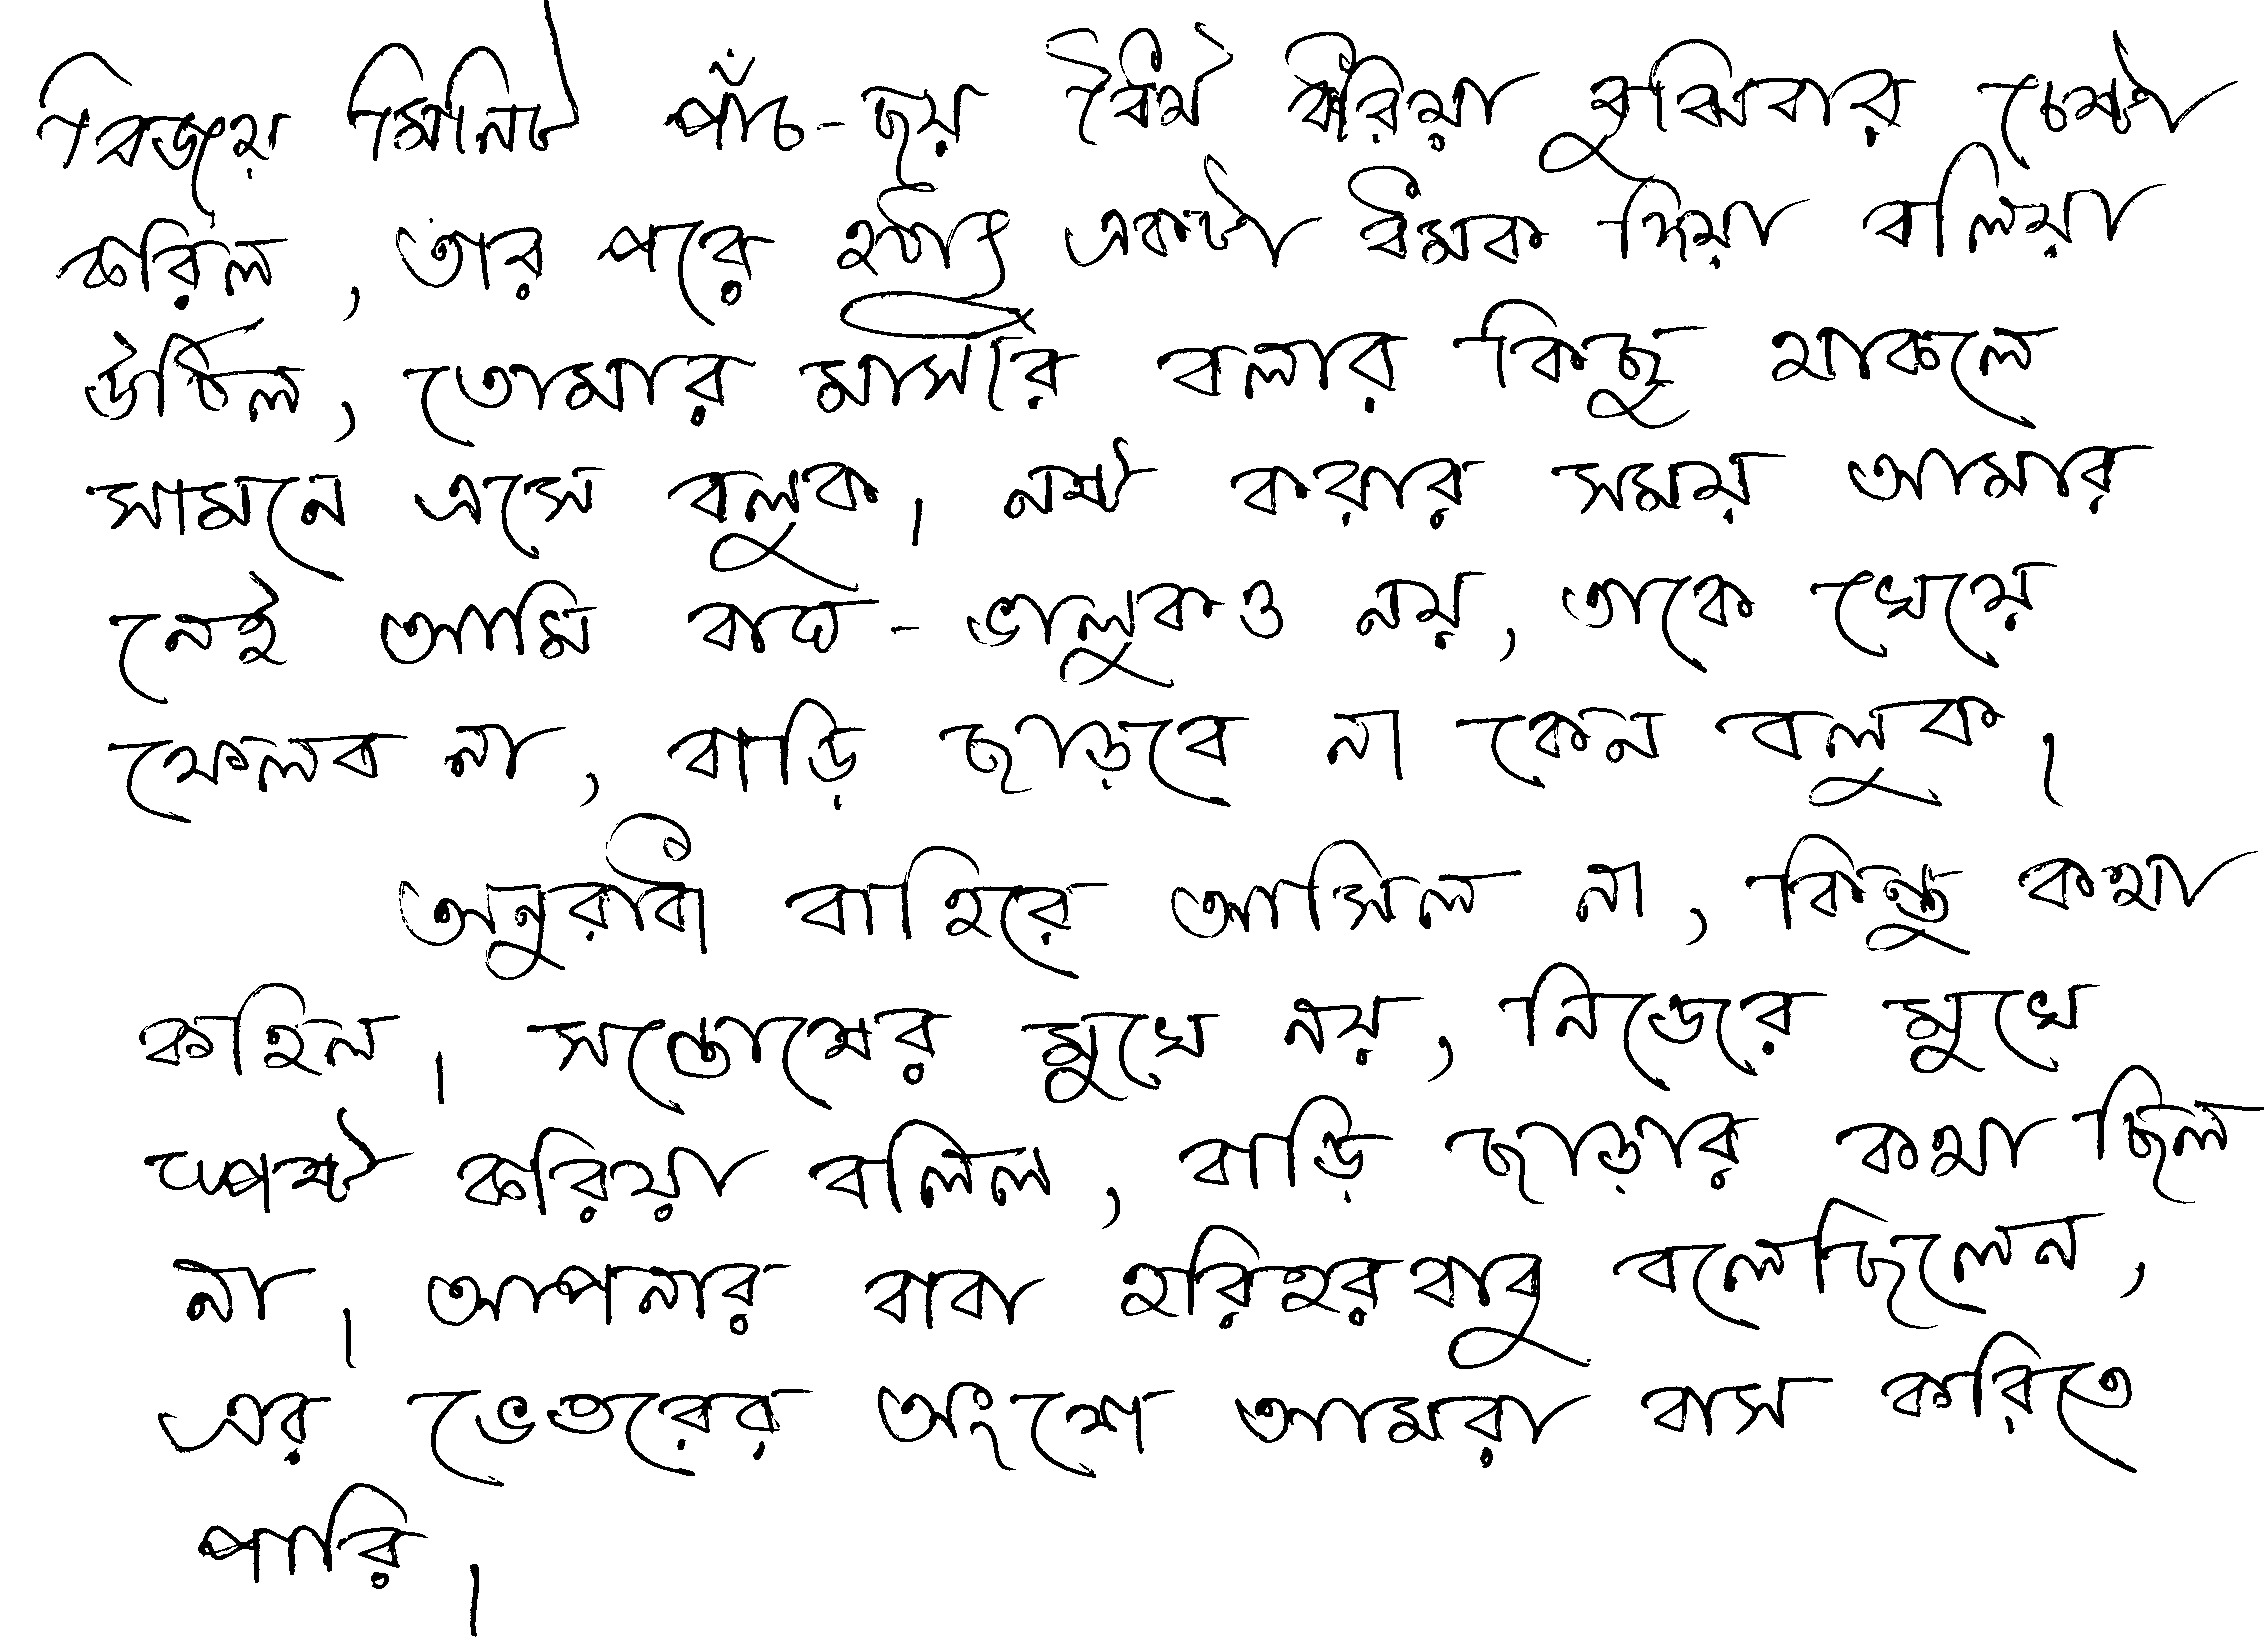 বিজয় মিনিট পাঁচ-ছয় ধৈর্য ধরিয়া বুঝিবার চেষ্টা
করিল, তার পরে হঠাৎ একটা ধমক দিয়া বলিয়া
উঠিল, তোমার মাসীর বলার কিছু থাকলে
সামনে এসে বলুক। নষ্ট করার সময় আমার
নেই আমি বাঘ-ভালুকও নয়, তাকে খেয়ে
ফেলব না, বাড়ি ছাড়বে না কেন বলুক।
অনুরাধা বাহিরে আসিল না, কিন্তু কথা
কহিল। সন্তোষের মুখে নয়, নিজের মুখে
স্পষ্ট করিয়া বলিল, বাড়ি ছাড়ার কথা ছিল
না। আপনার বাবা হরিহরবাবু বলেছিলেন,
এর ভেতরের অংশে আমরা বাস করিতে
পারি।